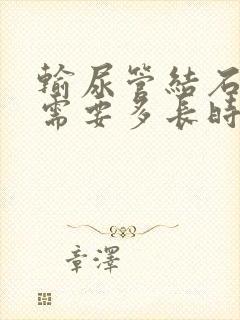 輸尿管結石
需要多長時
章澤